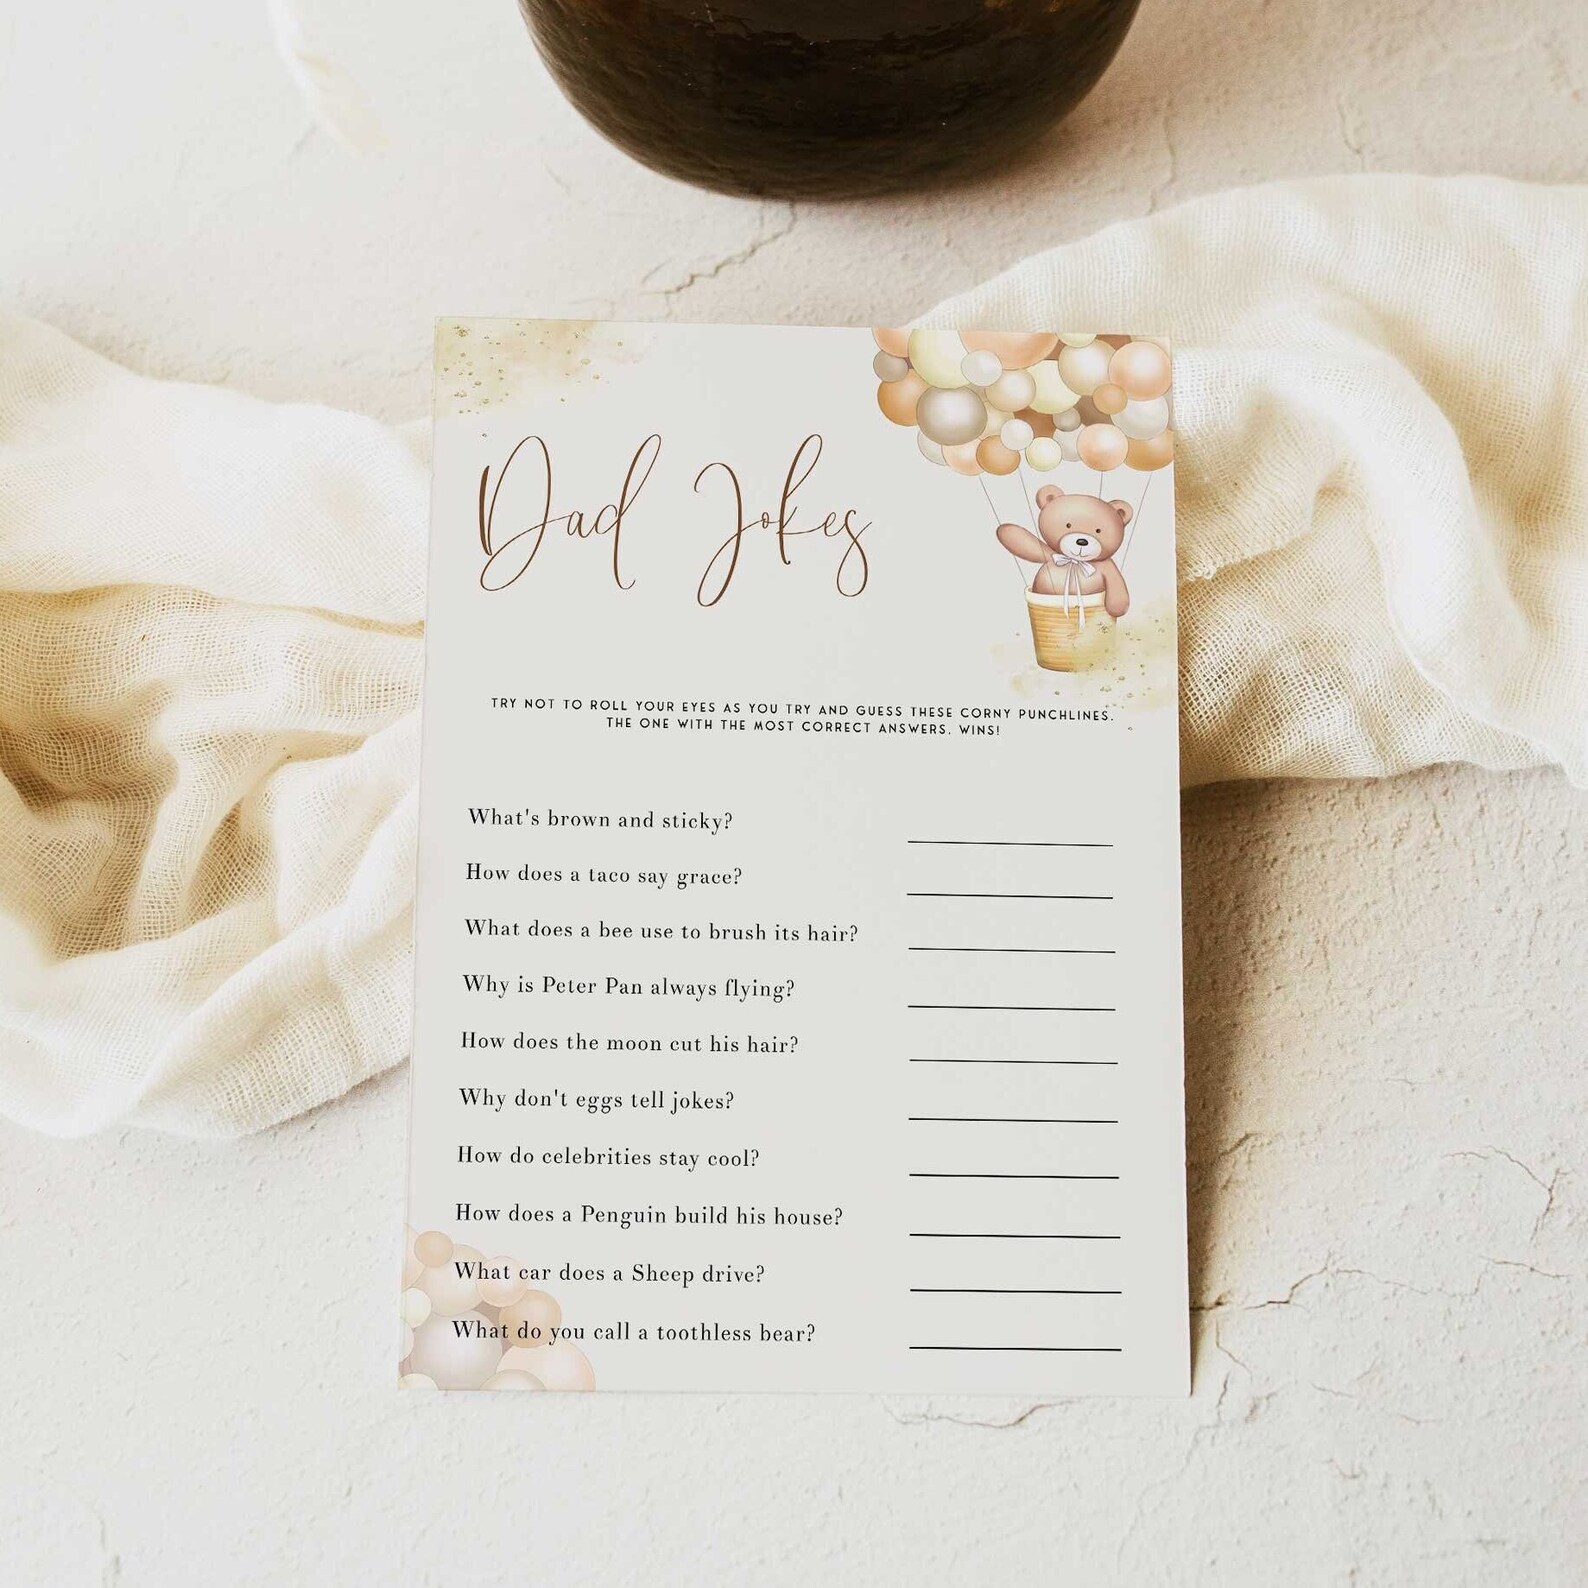 Dad Jokes
TRY NOT TO ROLL YOUR EYES AS YOU TRY AND GUESS THESE CORNY PUNCHLINES.
THE ONE WITH THE MOST CORRECT ANSWERS, WINS!
What's brown and sticky?
How does a taco say grace?
What does a bee use to brush its hair?
Why is Peter Pan always flying?
How does the moon cut his hair?
Why don't eggs tell jokes?
How do celebrities stay cool?
How does a Penguin build his house?
What car does a Sheep drive?
What do you call a toothless bear?